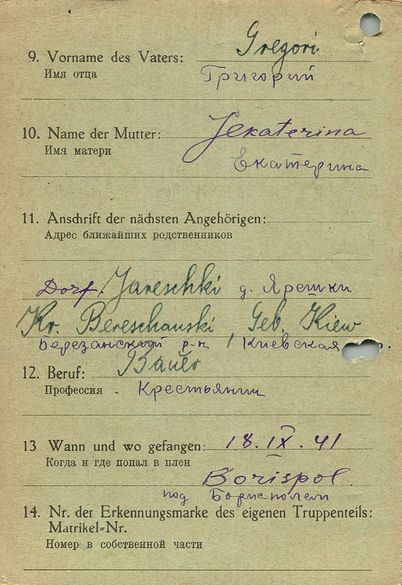 Gregori
9. Vorname des Vaters:
Имя отца Григорий
10. Name der Mutter: Jekaterina
Имя матери Екатерина
11. Anschrift der nächsten Angehörigen:
Адрес ближайших родственников
Dorf. Jareschki д. Ярешки
Kr. Bereschanski, Geb. Kiew
Березанский р-н, Киевская
12. Beruf: Bauer
Профессия . Крестьянин
13 Wann und wo gefangen: 18.IX.41
Когда и где попал в плен
Borispol.
под Борисполем
14. Nr. der Erkennungsmarke des eigenen Truppenteils:
Matrikel-Nr.
Номер в собственной части